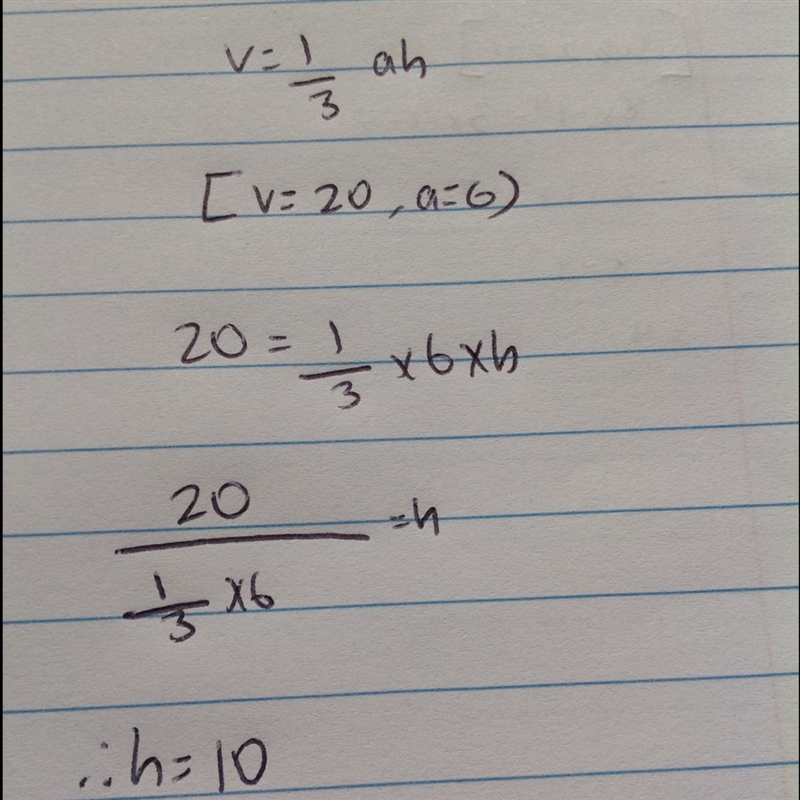 v = 1/3 ah
[v = 20, a = 6)
20 = 1/3 × 6 × h
20 / (1/3 × 6) = h
∴ h = 10